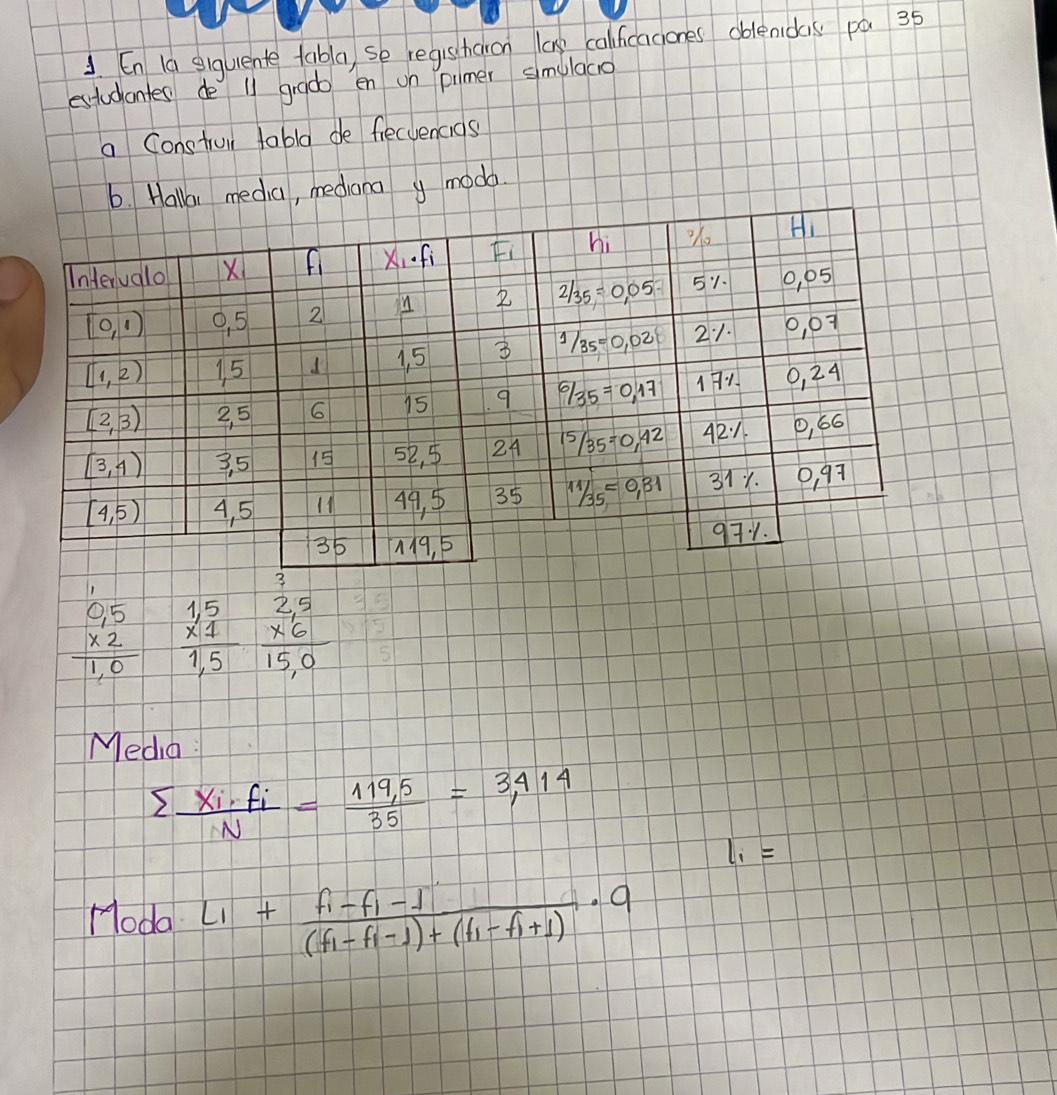 1. En la siguiente tabla, se registraron las calificaciones obtenidas pa 35
estudiantes de 11 grado en un primer simulacro
a Construir tabla de frecuencias
b. Hallar media, mediana y moda.
Intervalo Xi fi Xi·fi Fi hi % Hi
[0,1) 0,5 2 1 2 2/35=0,05 5% 0,05
[1,2) 1,5 1 1,5 3 1/35=0,02 2% 0,07
[2,3) 2,5 6 15 9 6/35=0,17 17% 0,24
[3,4) 3,5 15 52,5 24 15/35=0,42 42% 0,66
[4,5) 4,5 11 49,5 35 11/35=0,31 31% 0,97
35 119,5 97%
1 3
0,5 1,5 2,5
x2 x1 x6
1,0 1,5 15,0
Media:
Σ Xi·fi / N = 119,5 / 35 = 3,414
li =
Moda Li + fi-fi-1 / (fi-fi-1)+(fi-fi+1) · a